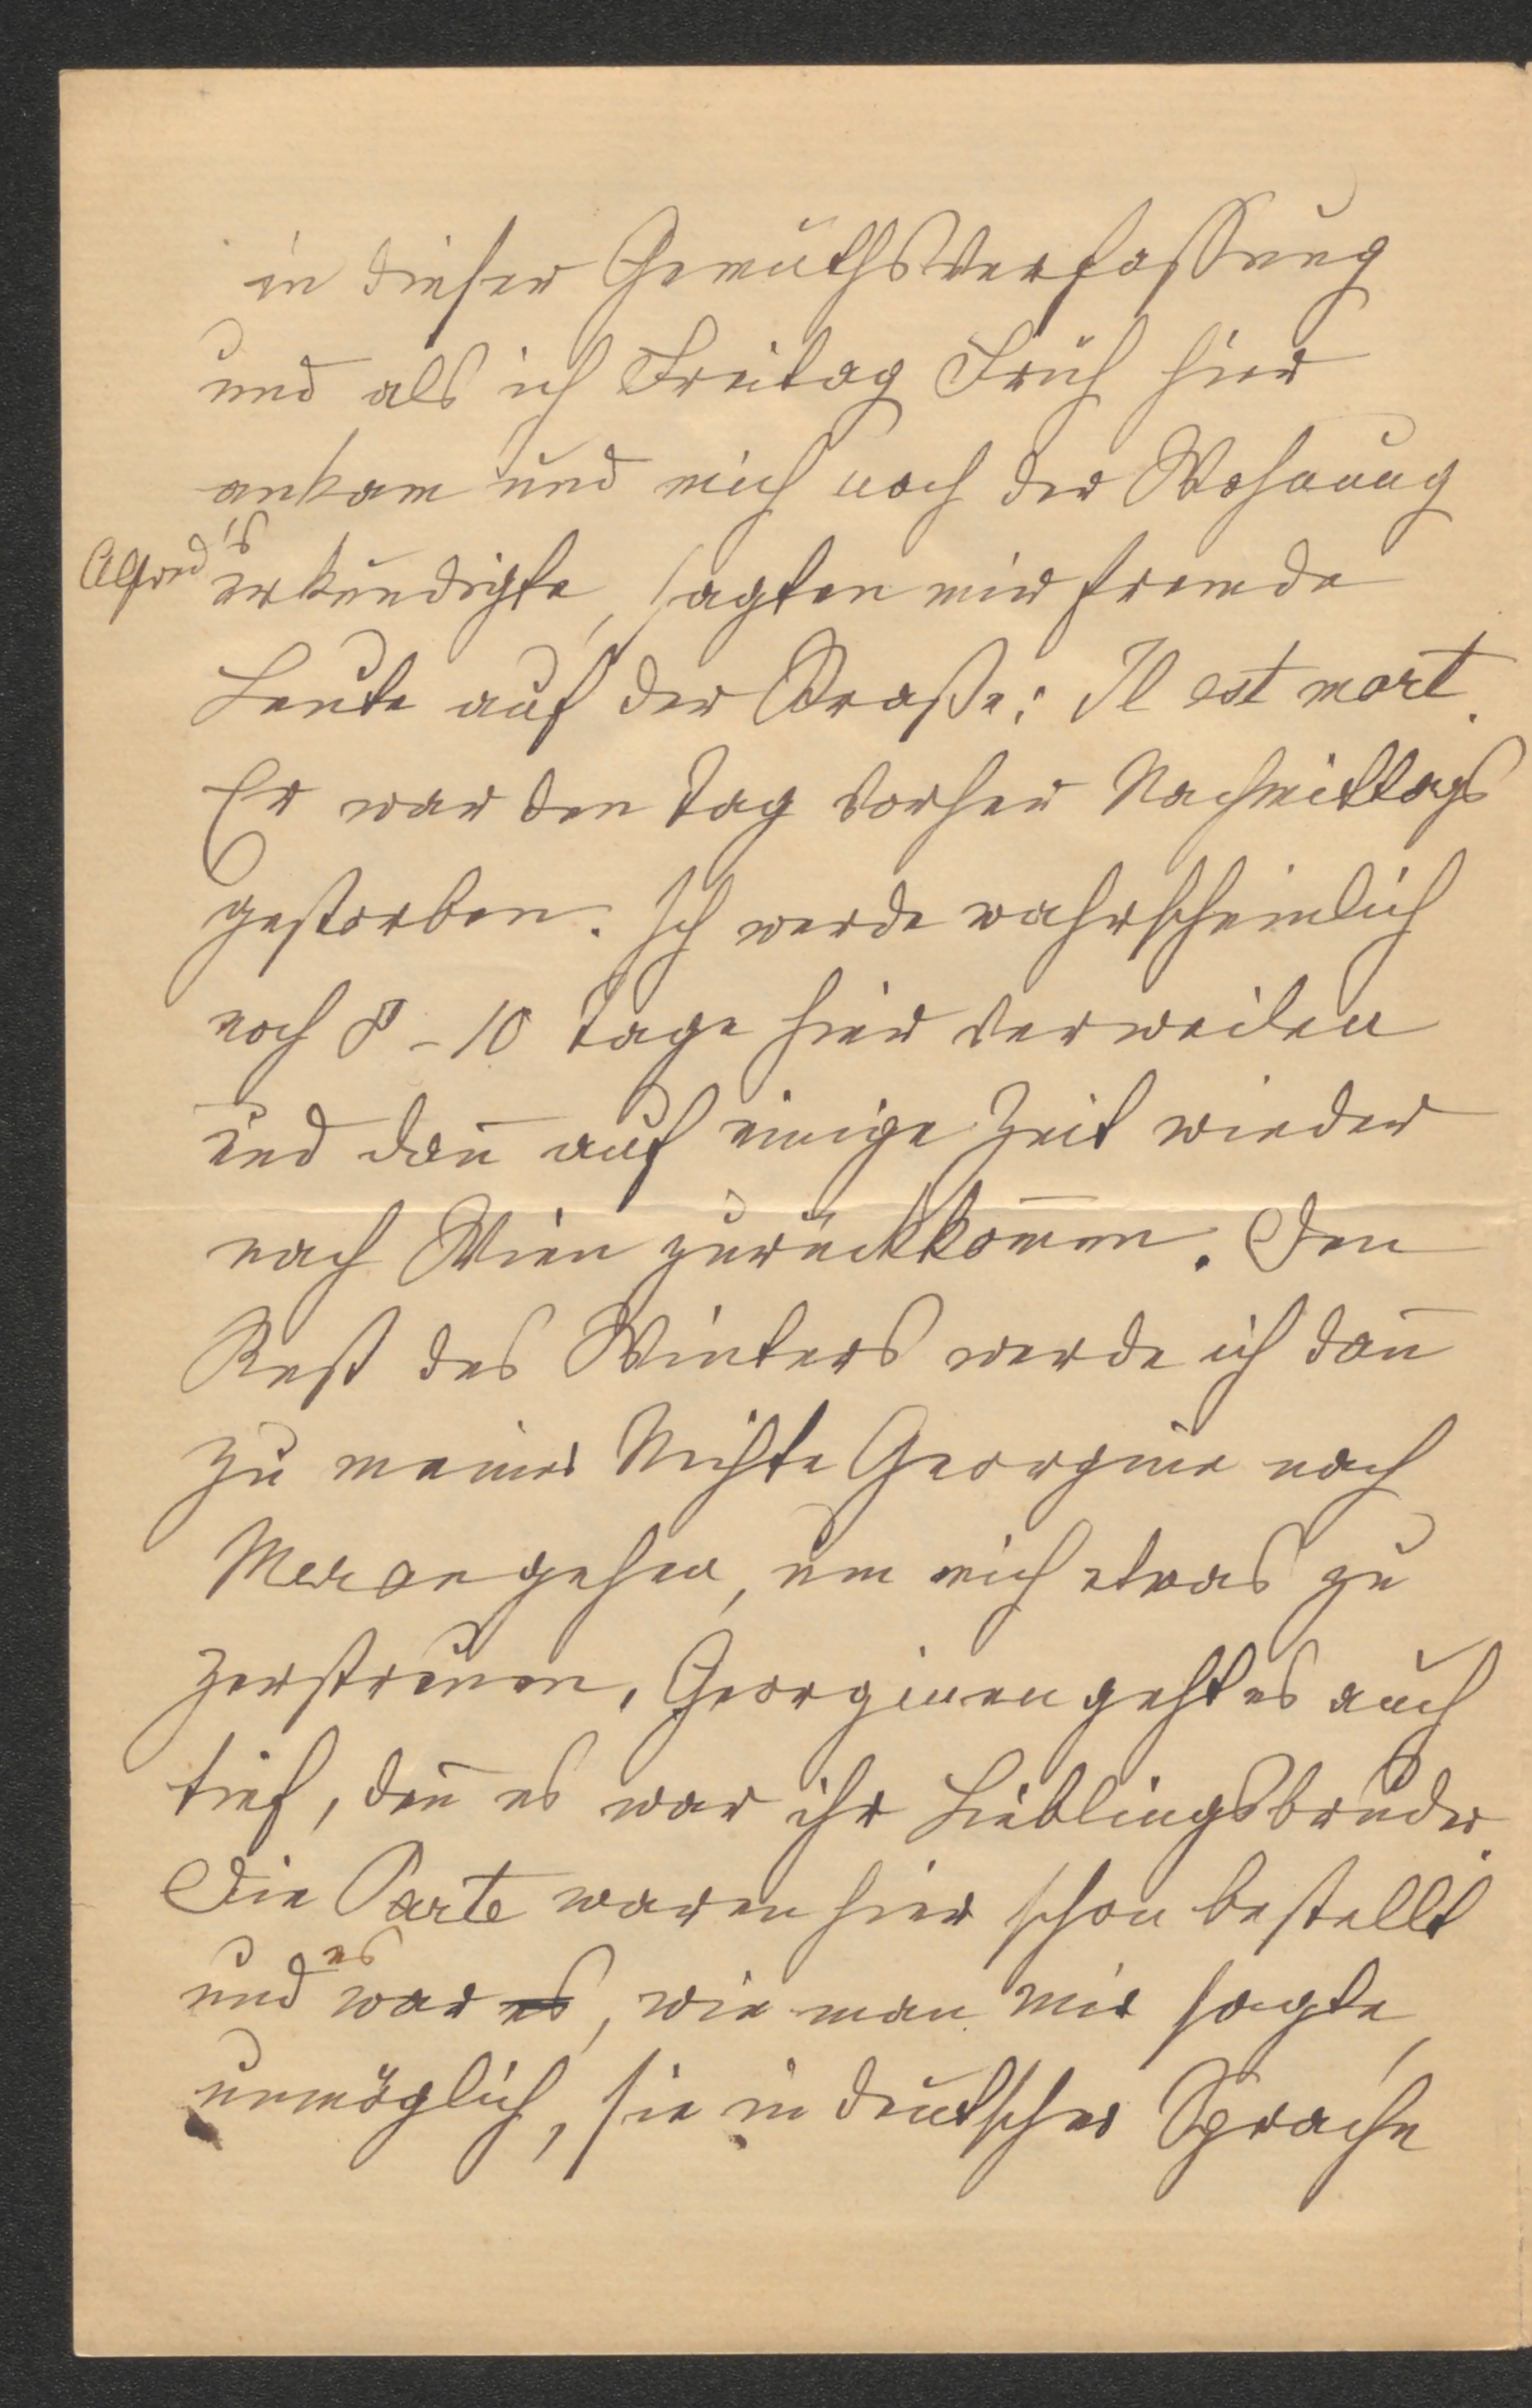 in dieser Gemüthsverfassung
und als ich Freitag Früh hier
ankam und mich nach der Wohnung
Alfred's erkundigte, sagten mir fremde
Leute auf der Straße: Il est mort.
Er war den Tag vorher Nachmittags
gestorben. Ich werde wahrscheinlich
noch 8-10 Tage hier verweilen
und dan̄ auf einige Zeit wieder
nach Wien zurückkom̄en. Den
Rest des Winters werde ich dan̄
zu meiner Nichte Georgine nach
Meran gehen, um mich etwas zu
zerstreuen. Georginen geht es auch
tief, den̄ es war ihr Lieblingsbruder.
Die Parte waren hier schon bestellt
und es war es, wie man mir sagte,
unmöglich, sie in deutscher Sprache